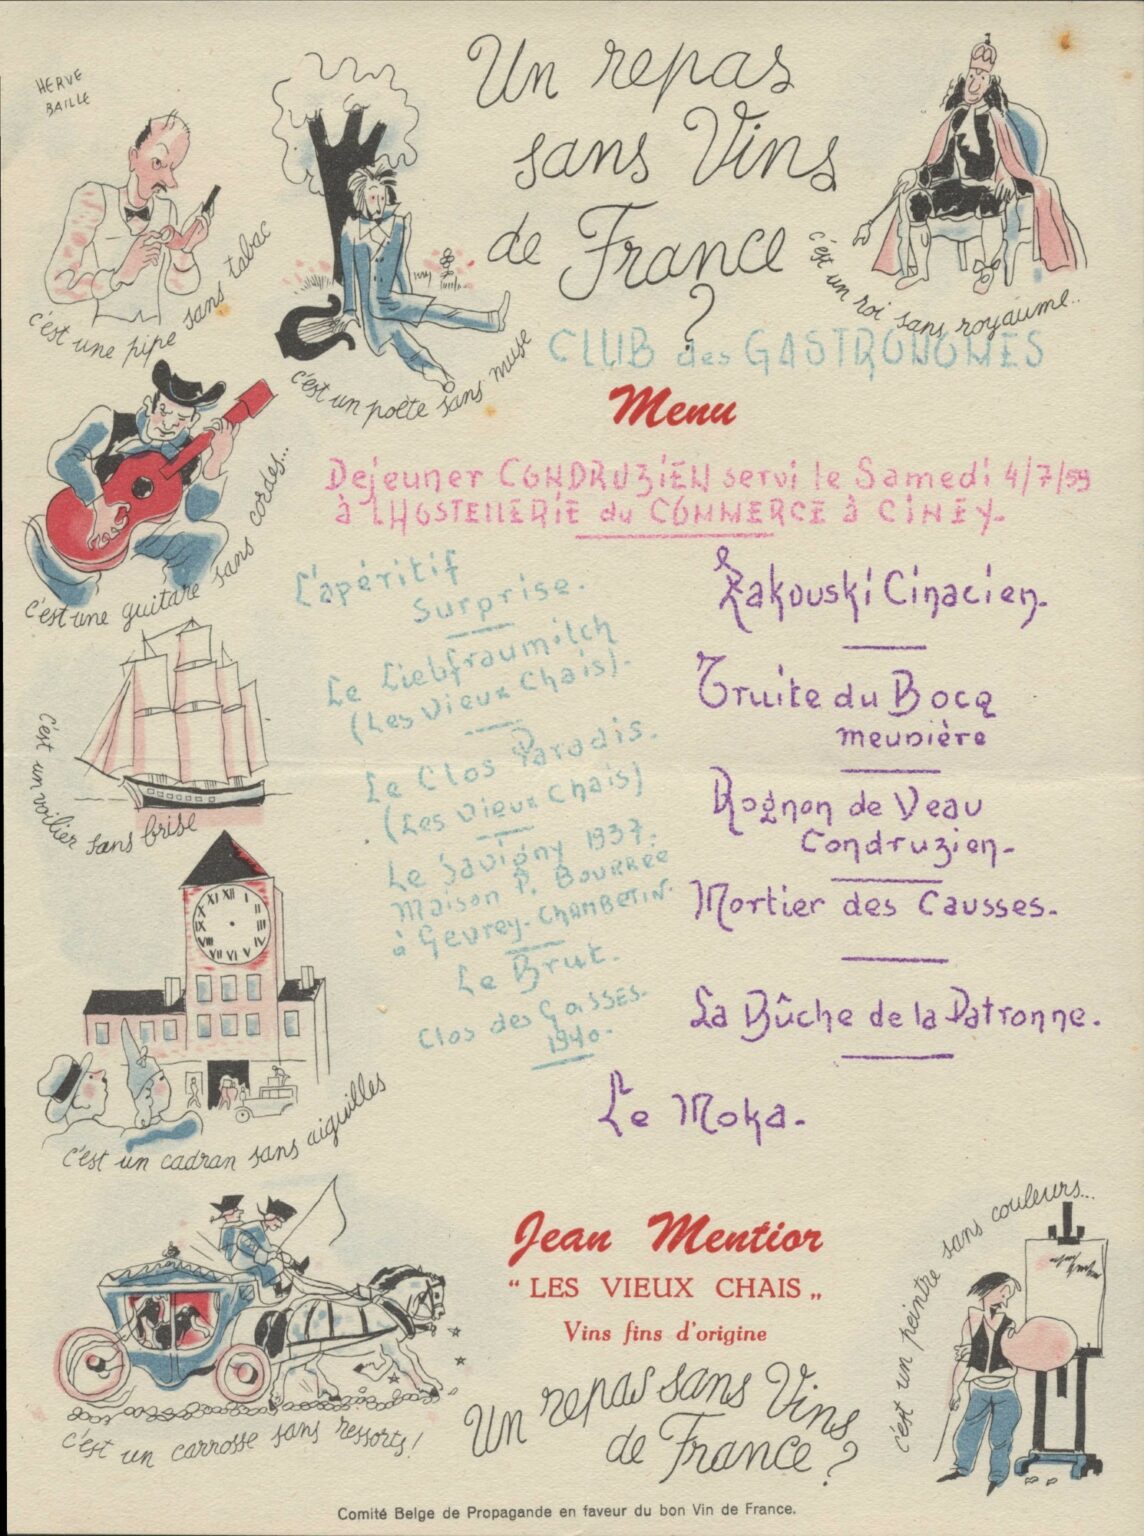 HERVE
BAILLE
Un repas
sans Vins
de France
?
c'est une pipe sans tabac
c'est un poète sans muse
c'est un roi sans royaume..
CLUB des GASTRONOMES
Menu
Dejeuner CONDRUZIEN servi le Samedi 4/7/59
à l'HOSTELLERIE du COMMERCE à CINEY-
c'est une guitare sans cordes...
c'est un voilier sans brise
c'est un cadran sans aiguilles
XII I II III IV V VI VII VIII IX X XI
L'apéritif
Surprise.
Le Liebfraumilch
(Les Vieux Chais).
Le Clos Paradis.
(Les Vieux Chais)
Le Savigny 1937.
Maison P. BOURRÉE
à Gevrey-CHAMBETIN.
Le Brut.
Clos des Gasses.
1940.
Zakouski Cinacien.
Truite du Bocq
meunière
Rognon de Veau
Condruzien.
Mortier des Causses.
La Bûche de la Patronne.
Le Moka.
c'est un carrosse sans ressorts!
Jean Mentior
" LES VIEUX CHAIS „
Vins fins d'origine
Un repas sans Vins
de France ?
c'est un peintre sans couleurs...
Comité Belge de Propagande en faveur du bon Vin de France.